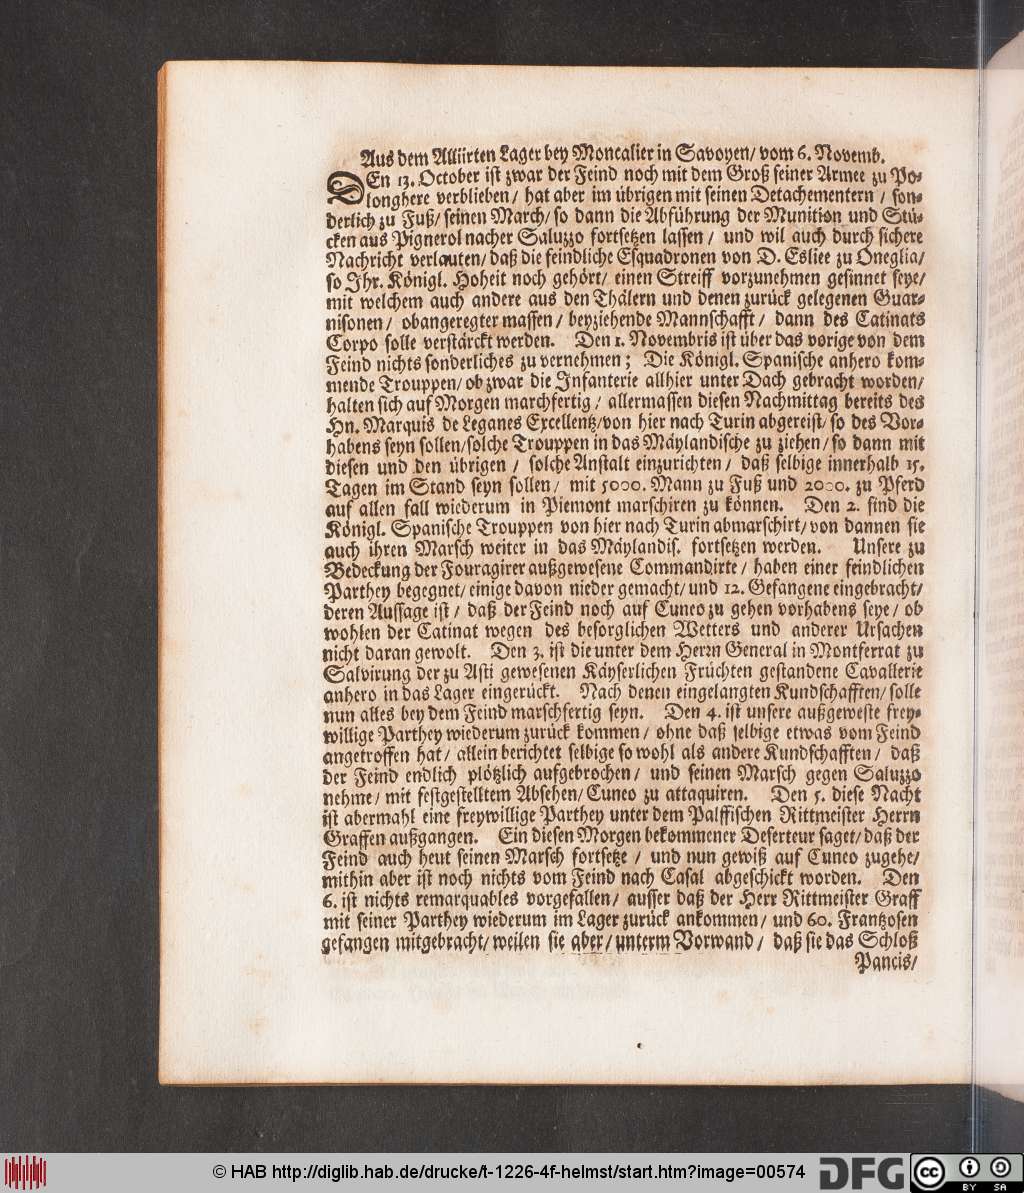 Aus dem Alliirten Lager bey Moncalier in Savoyen/ vom 6. Novemb.
DEn 13. October ist zwar der Feind noch mit dem Groß seiner Armee zu Po-
longhere verblieben/ hat aber im übrigen mit seinen Detachementern/ son-
derlich zu Fuß/ seinen March/ so dann die Abführung der Munition und Stü-
cken aus Pignerol nacher Saluzzo fortsetzen lassen/ und wil auch durch sichere
Nachricht verlauten/ daß die feindliche Esquadronen von D. Esliee zu Oneglia/
so Ihr. Königl. Hoheit noch gehört/ einen Streiff vorzunehmen gesinnet seye/
mit welchem auch andere aus den Thälern und denen zurück gelegenen Guar-
nisonen/ obangeregter massen/ beyziehende Mannschafft/ dann des Catinats
Corpo solle verstärckt werden. Den 1. Novembris ist über das vorige von dem
Feind nichts sonderliches zu vernehmen; Die Königl. Spanische anhero kom-
mende Trouppen/ ob zwar die Infanterie allhier unter Dach gebracht worden/
halten sich auf Morgen marchfertig/ allermassen diesen Nachmittag bereits des
Hn. Marquis de Leganes Excellentz/ von hier nach Turin abgereist/ so des Vor-
habens seyn sollen/ solche Trouppen in das Mäylandische zu ziehen/ so dann mit
diesen und den übrigen/ solche Anstalt einzurichten/ daß selbige innerhalb 15.
Tagen im Stand seyn sollen/ mit 5000. Mann zu Fuß und 2000. zu Pferd
auf allen fall wiederum in Piemont marschiren zu können. Den 2. sind die
Königl. Spanische Trouppen von hier nach Turin abmarschirt/ von dannen sie
auch ihren Marsch weiter in das Mäylandis. fortsetzen werden. Unsere zu
Bedeckung der Fouragirer außgewesene Commandirte/ haben einer feindlichen
Parthey begegnet/ einige davon nieder gemacht/ und 12. Gefangene eingebracht/
deren Aussage ist/ daß der Feind noch auf Cuneo zu gehen vorhabens seye/ ob
wohlen der Catinat wegen des besorglichen Wetters und anderer Ursachen
nicht daran gewolt. Den 3. ist die unter dem Herrn General in Montferrat zu
Salvirung der zu Asti gewesenen Käyserlichen Früchten gestandene Cavallerie
anhero in das Lager eingerückt. Nach denen eingelangten Kundschafften/ solle
nun alles bey dem Feind marschfertig seyn. Den 4. ist unsere außgeweste frey-
willige Parthey wiederum zurück kommen/ ohne daß selbige etwas vom Feind
angetroffen hat/ allein berichtet selbige so wohl als andere Kundschafften/ daß
der Feind endlich plötzlich aufgebrochen/ und seinen Marsch gegen Saluzzo
nehme/ mit festgestelltem Absehen/ Cuneo zu attaquiren. Den 5. diese Nacht
ist abermahl eine freywillige Parthey unter dem Palffischen Rittmeister Herrn
Graffen außgangen. Ein diesen Morgen bekommener Deserteur saget/ daß der
Feind auch heut seinen Marsch fortsetze/ und nun gewiß auf Cuneo zugehe/
mithin aber ist noch nichts vom Feind nach Casal abgeschickt worden. Den
6. ist nichts remarquables vorgefallen/ ausser daß der Herr Rittmeister Graff
mit seiner Parthey wiederum im Lager zurück ankommen/ und 60. Frantzosen
gefangen mitgebracht/ weilen sie aber/ unterm Vorwand/ daß sie das Schloß
Pancis/
© HAB http://diglib.hab.de/drucke/t-1226-4f-helmst/start.htm?image=00574 DFG cc BY SA